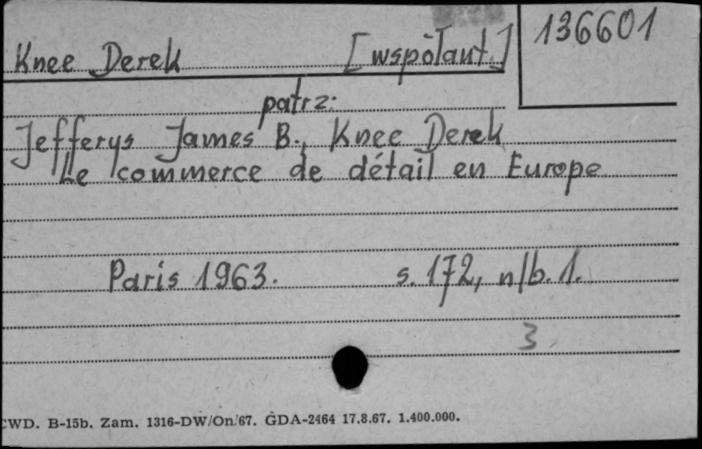 136601
Knee Derek [współaut.]
patrz:
Jefferys James B., Knee Derek
Le commerce de détail en Europe
Paris 1963. s. 172, nlb. 1.
3
CWD. B-15b. Zam. 1316-DW/On/67. GDA-2464 17.8.67. 1.400.000.